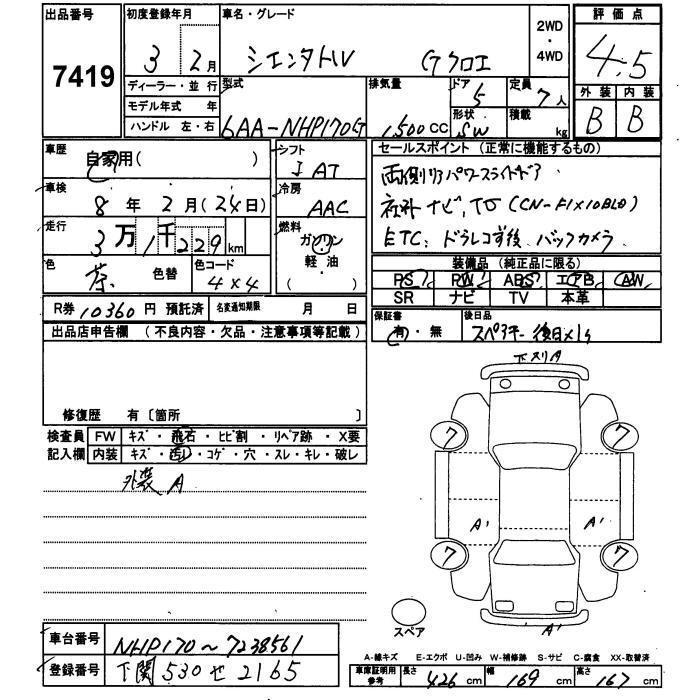 出品番号 7419
初度登録年月 3 2月
車名・グレード シエンタHV Gクロエ
2WD・4WD
評価点 4.5
ディーラー・並行
モデル年式 年
ハンドル 左・右
型式 6AA-NHP170G
排気量 1,500CC
ドア 5
形状 SW
定員 7人
積載 kg
外装 内装
B B
車歴 自家用( )
シフト I AT
車検 8年2月(24日)
冷房 AAC
走行 3万1千229km
燃料 ガソリン・軽・油・( )
色 茶 色替 色コード 4×4
R券 10360円 預託済 名変通知期限 月 日
セールスポイント (正常に機能するもの)
両側リアパワースライドドア
社外ナビ、TV (CN-F1X10BLD)
ETC、ドラレコ前後、バックカメラ
装備品 (純正品に限る)
PS PW ABS エアB AW
SR ナビ TV 本革
保証書 有・無
後日品 スペアキー後日×1ヶ
出品店申告欄 (不良内容・欠品・注意事項等記載)
修復歴 有〔箇所 〕
検査員記入欄
FW キズ・飛石・ヒビ割・リペア跡・X要
内装 キズ・汚レ・コゲ・穴・スレ・キレ・破レ
外装 A
下スリA
7 7
A' A'
7 7
A'
スペア
車台番号 NHP170~7238561
登録番号 下関 530 せ 2165
A-線キズ E-エクボ U-凹み W-補修跡 S-サビ C-腐食 XX-取替済
車庫証明用参考 長さ 426 cm 幅 169 cm 高さ 167 cm